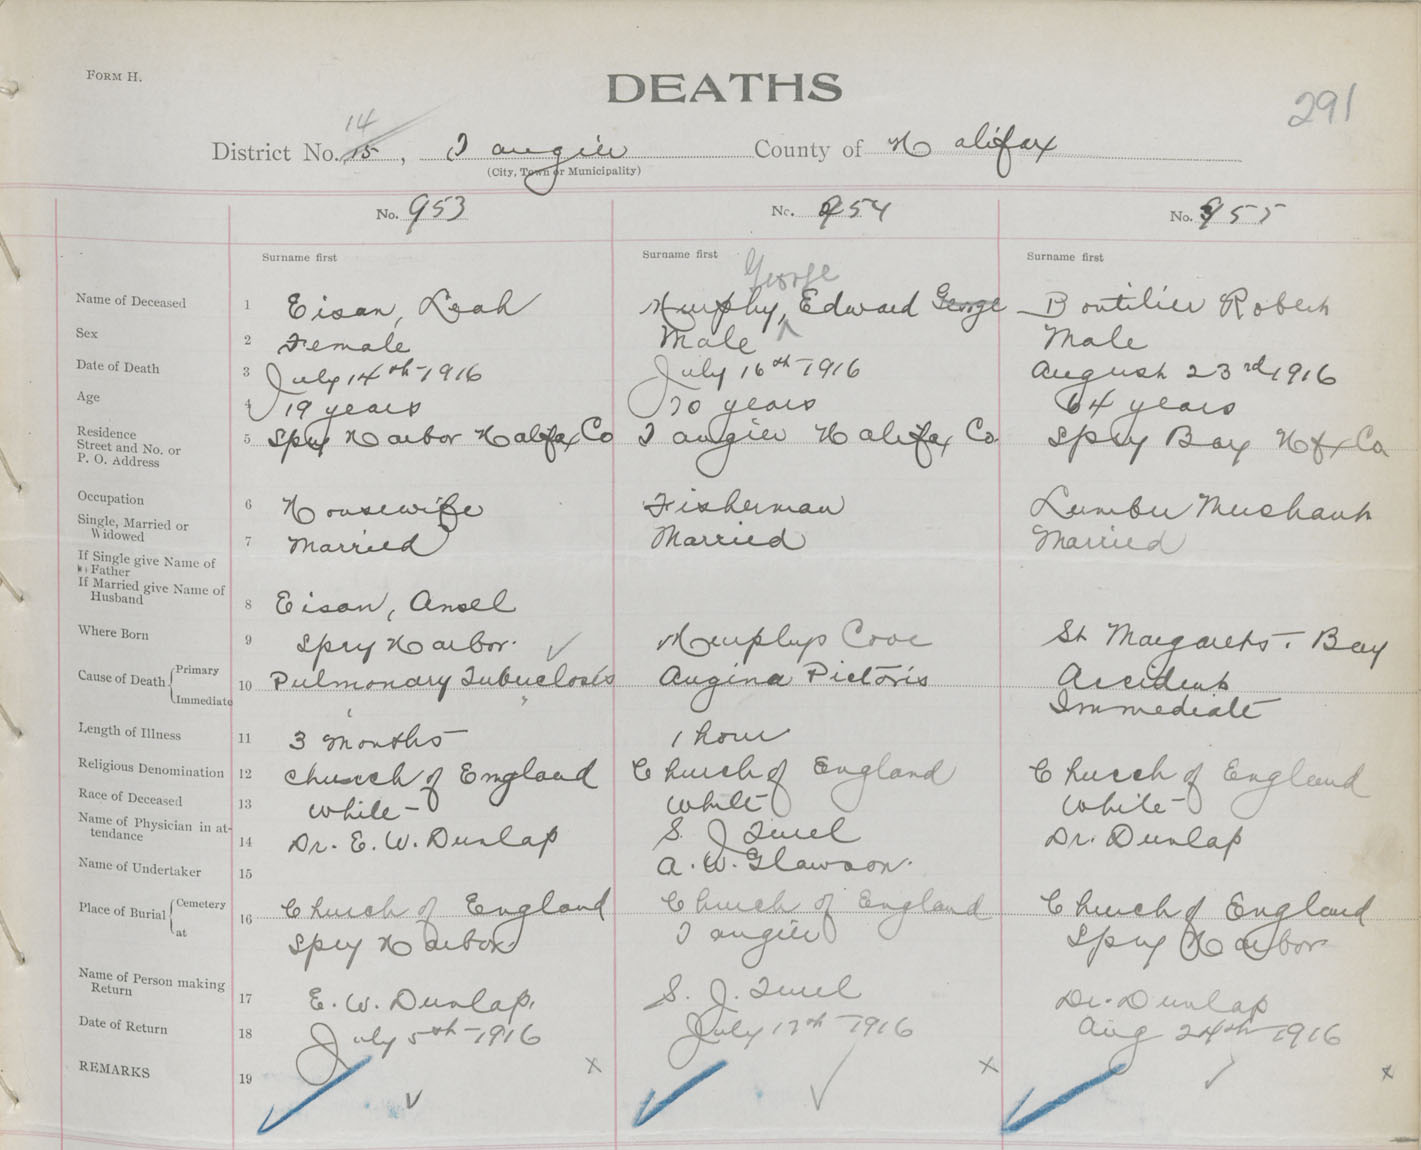 FORM H.
DEATHS
291
14
District No. 15, Tangier County of Halifax
(City, Town or Municipality)
No. 953 No. 954 No. 955
Surname first Surname first Surname first
George
Name of Deceased 1 Eisan, Leah Murphy, Edward George Boutilier Robert
Sex 2 Female Male Male
Date of Death 3 July 14th-1916 July 16th-1916 August 23rd 1916
Age 4 19 years 70 years 64 years
Residence Street and No. or P. O. Address 5 Spry Harbor Halifax Co Tangier Halifax Co Spry Bay Hfx Co
Occupation 6 Housewife Fisherman Lumber Merchant
Single, Married or Widowed 7 Married Married Married
If Single give Name of Father
If Married give Name of Husband 8 Eisan, Ansel
Where Born 9 Spry Harbor. Murphys Cove St Margarets. Bay
Cause of Death Primary Immediate 10 Pulmonary Tubuclosis Angina Pictoris Accident
Immediate
Length of Illness 11 3 Months 1 hour
Religious Denomination 12 Church of England Church of England Church of England
Race of Deceased 13 White White White
Name of Physician in attendance 14 Dr. E. W. Dunlap S. J. Turel Dr. Dunlap
Name of Undertaker 15 A. W. Glawson.
Place of Burial Cemetery at 16 Church of England Church of England Church of England
Spry Harbor. Tangier Spry Harbor
Name of Person making Return 17 E. W. Dunlap. S. J. Turel Dr. Dunlap
Date of Return 18 July 5th-1916 July 17th-1916 Aug 24th-1916
REMARKS 19 x x x